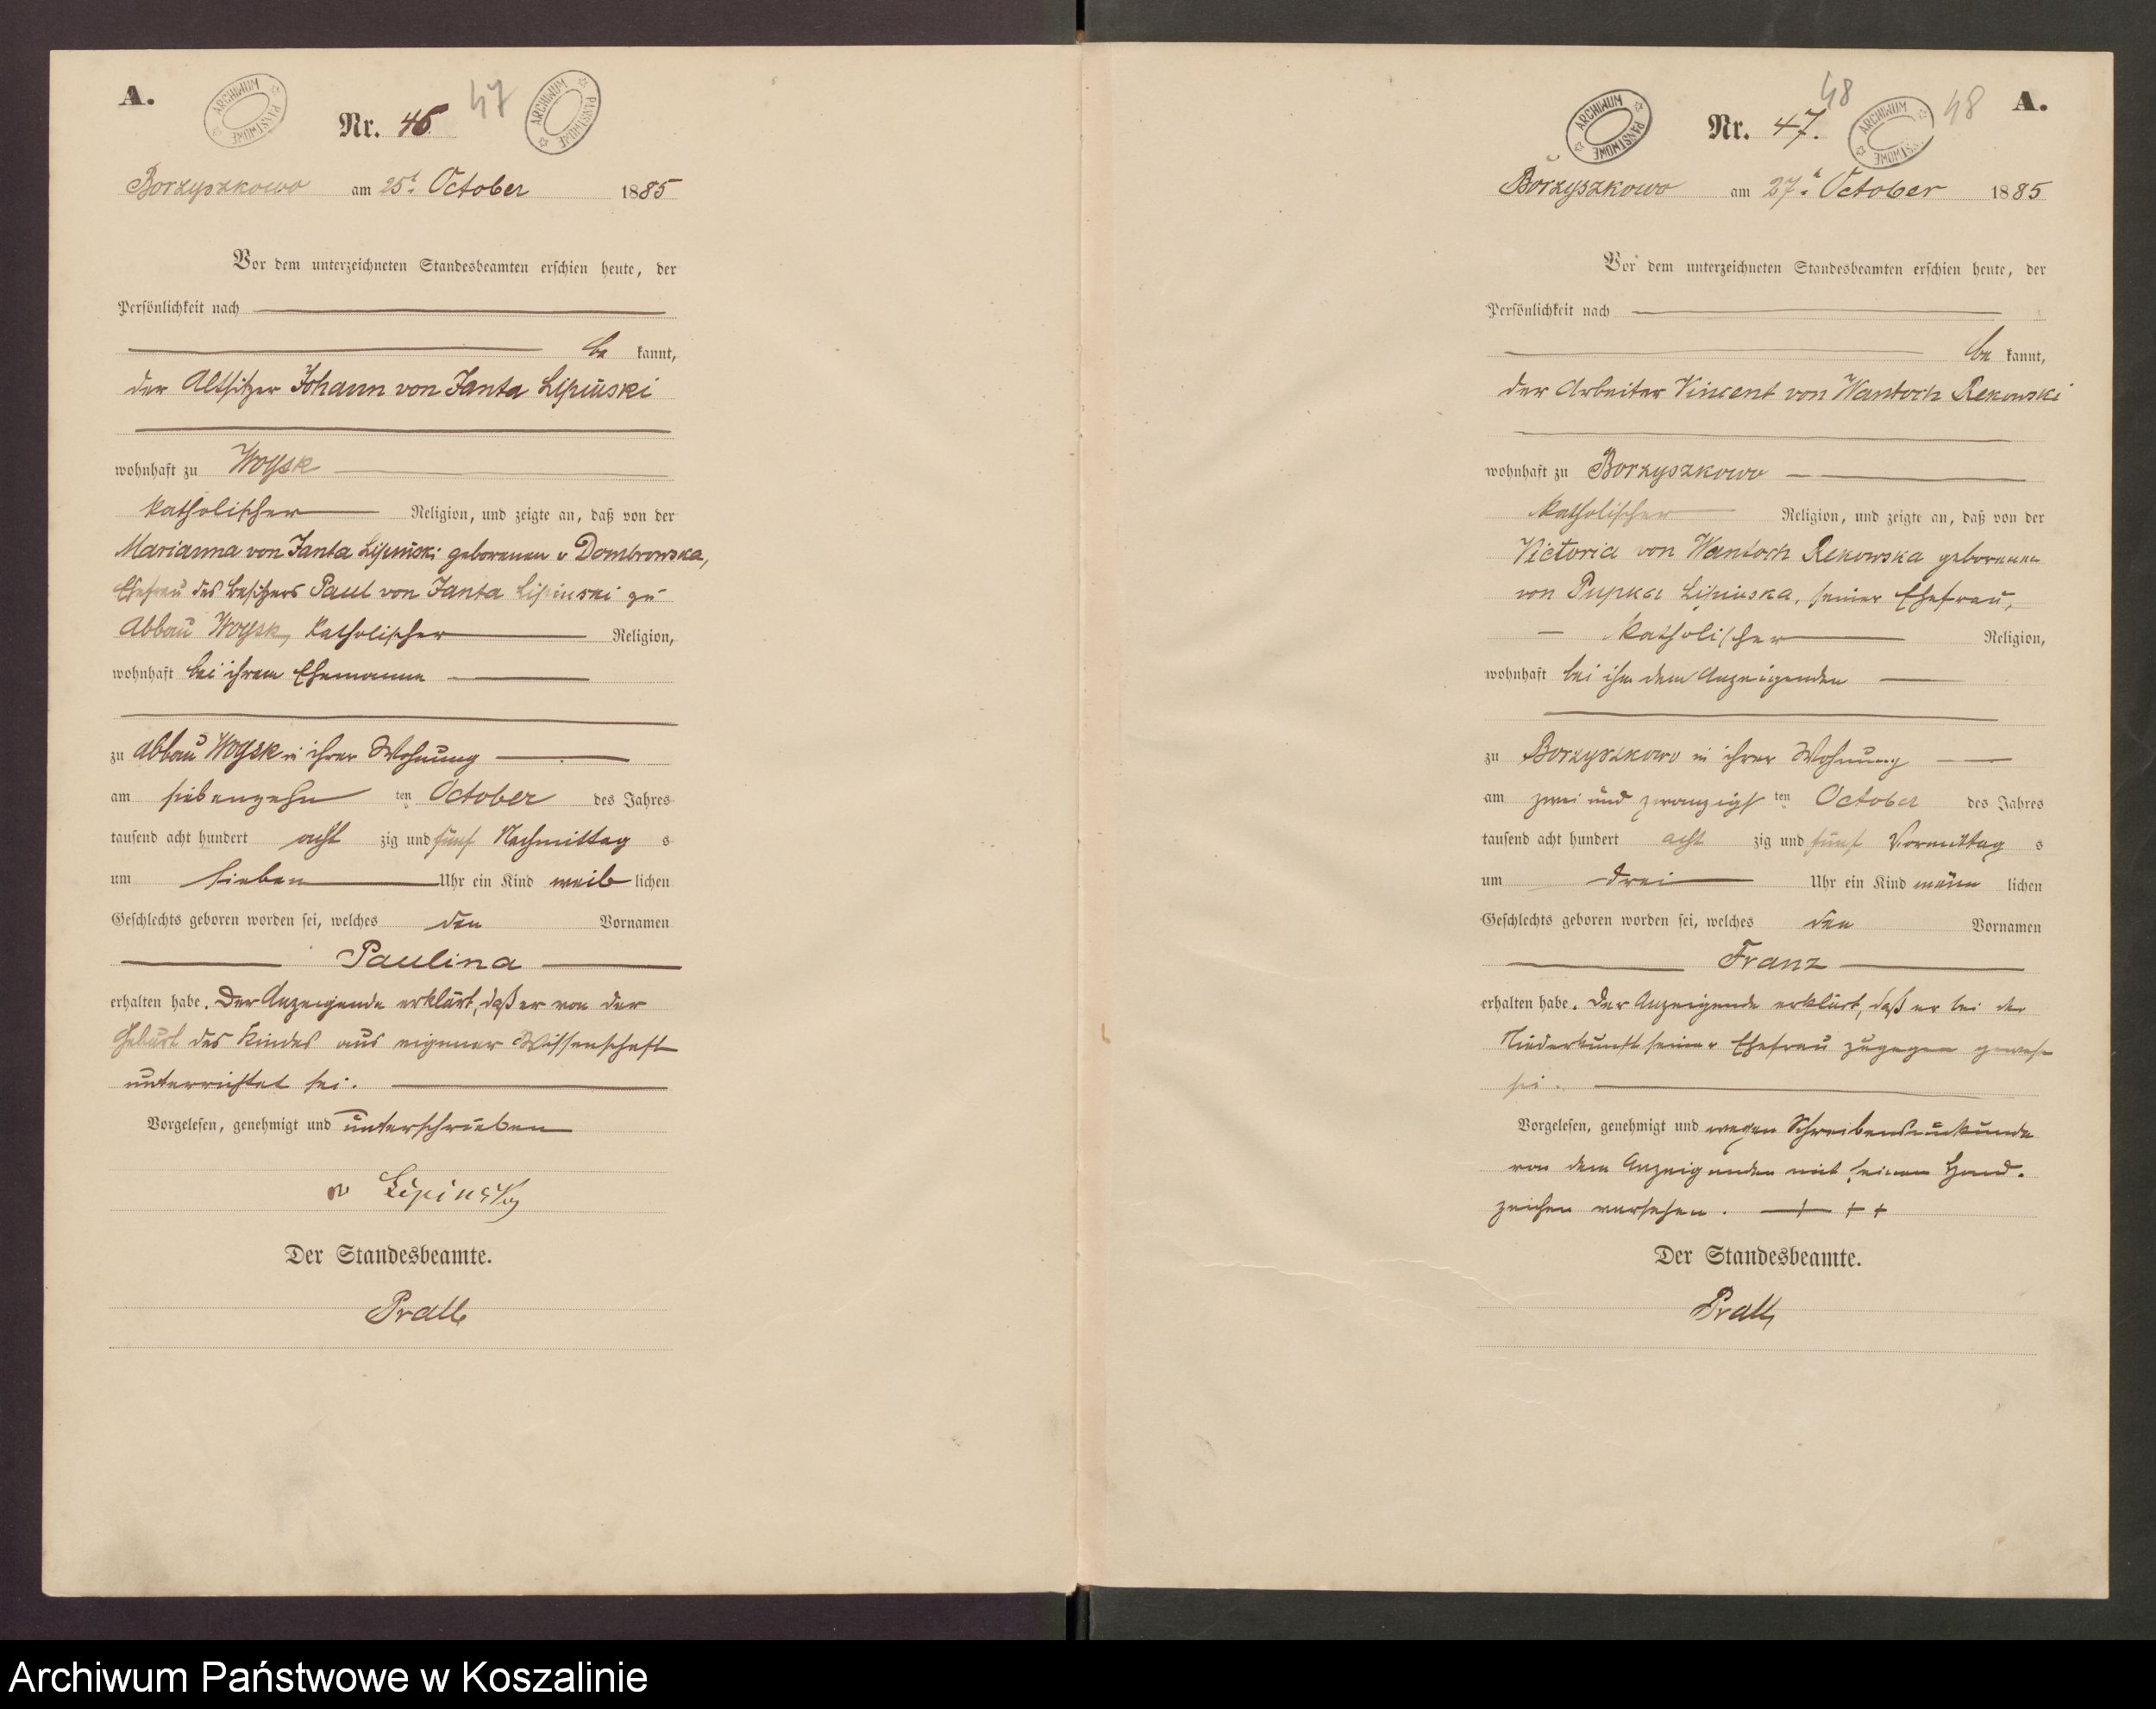 A.
ARCHIWUM PAŃSTWOWE
Nr. 46
47
ARCHIWUM PAŃSTWOWE
Borzyszkowo am 25t. October 1885
Vor dem unterzeichneten Standesbeamten erschien heute, der
Persönlichkeit nach
be kannt,
der Altsitzer Johann von Janta Lipinski
wohnhaft zu Woysk
katholischer Religion, und zeigte an, daß von der
Marianna von Janta Lipinski geborenen v Dombrowska,
Ehefrau des Besitzers Paul von Janta Lipinski zu
Abbau Woysk, katholischer Religion,
wohnhaft bei ihrem Ehemanne
zu Abbau Woysk in ihrer Wohnung
am siebenzehn ten October des Jahres
tausend acht hundert acht zig und fünf Nachmittag s
um sieben Uhr ein Kind weib lichen
Geschlechts geboren worden sei, welches den Vornamen
Paulina
erhalten habe. Der Anzeigende erklärt, daß er von der
Geburt des Kindes aus eigener Wissenschaft
unterrichtet sei.
Vorgelesen, genehmigt und unterschrieben
v Lipinsky
Der Standesbeamte.
Pralle
A.
ARCHIWUM PAŃSTWOWE
Nr. 47.
48
ARCHIWUM PAŃSTWOWE
48
Borzyszkowo am 27t. October 1885
Vor dem unterzeichneten Standesbeamten erschien heute, der
Persönlichkeit nach
be kannt,
der Arbeiter Vincent von Wantoch Rekowski
wohnhaft zu Borzyszkowo
katholischer Religion, und zeigte an, daß von der
Victoria von Wantoch Rekowska geborenen
von Pupka Lipinska, seiner Ehefrau,
katholischer Religion,
wohnhaft bei ihm dem Anzeigenden
zu Borzyszkowo in ihrer Wohnung
am zwei und zwanzigs ten October des Jahres
tausend acht hundert acht zig und fünf Vormittag s
um drei Uhr ein Kind männ lichen
Geschlechts geboren worden sei, welches den Vornamen
Franz
erhalten habe. Der Anzeigende erklärt, daß er bei der
Niederkunft seiner Ehefrau zugegen gewesen
sei.
Vorgelesen, genehmigt und wegen Schreibensunkunde
von dem Anzeigenden mit seinem Hand-
zeichen versehen. + + +
Der Standesbeamte.
Pralle
Archiwum Państwowe w Koszalinie